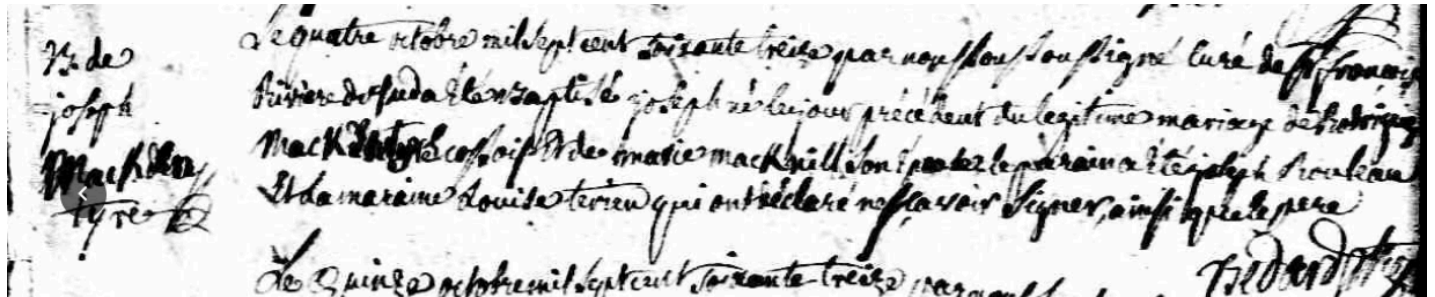 B. de
joseph
Mackden
tyre
Le quatre octobre mil sept cent soixante treize par nous sous soussigné curé de st françois
Riviere du sud a été baptisé joseph né le jour précédent du legitime mariage de Rodrigue
Mack ecossois et de marie macknill le parain a été joseph Rouleau
Et la maraine Louise terien qui ont déclaré ne sçavoir signer, ainsi que le pere
Bedard ptre
Le quinze octobre mil sept cent soixante treize par nous